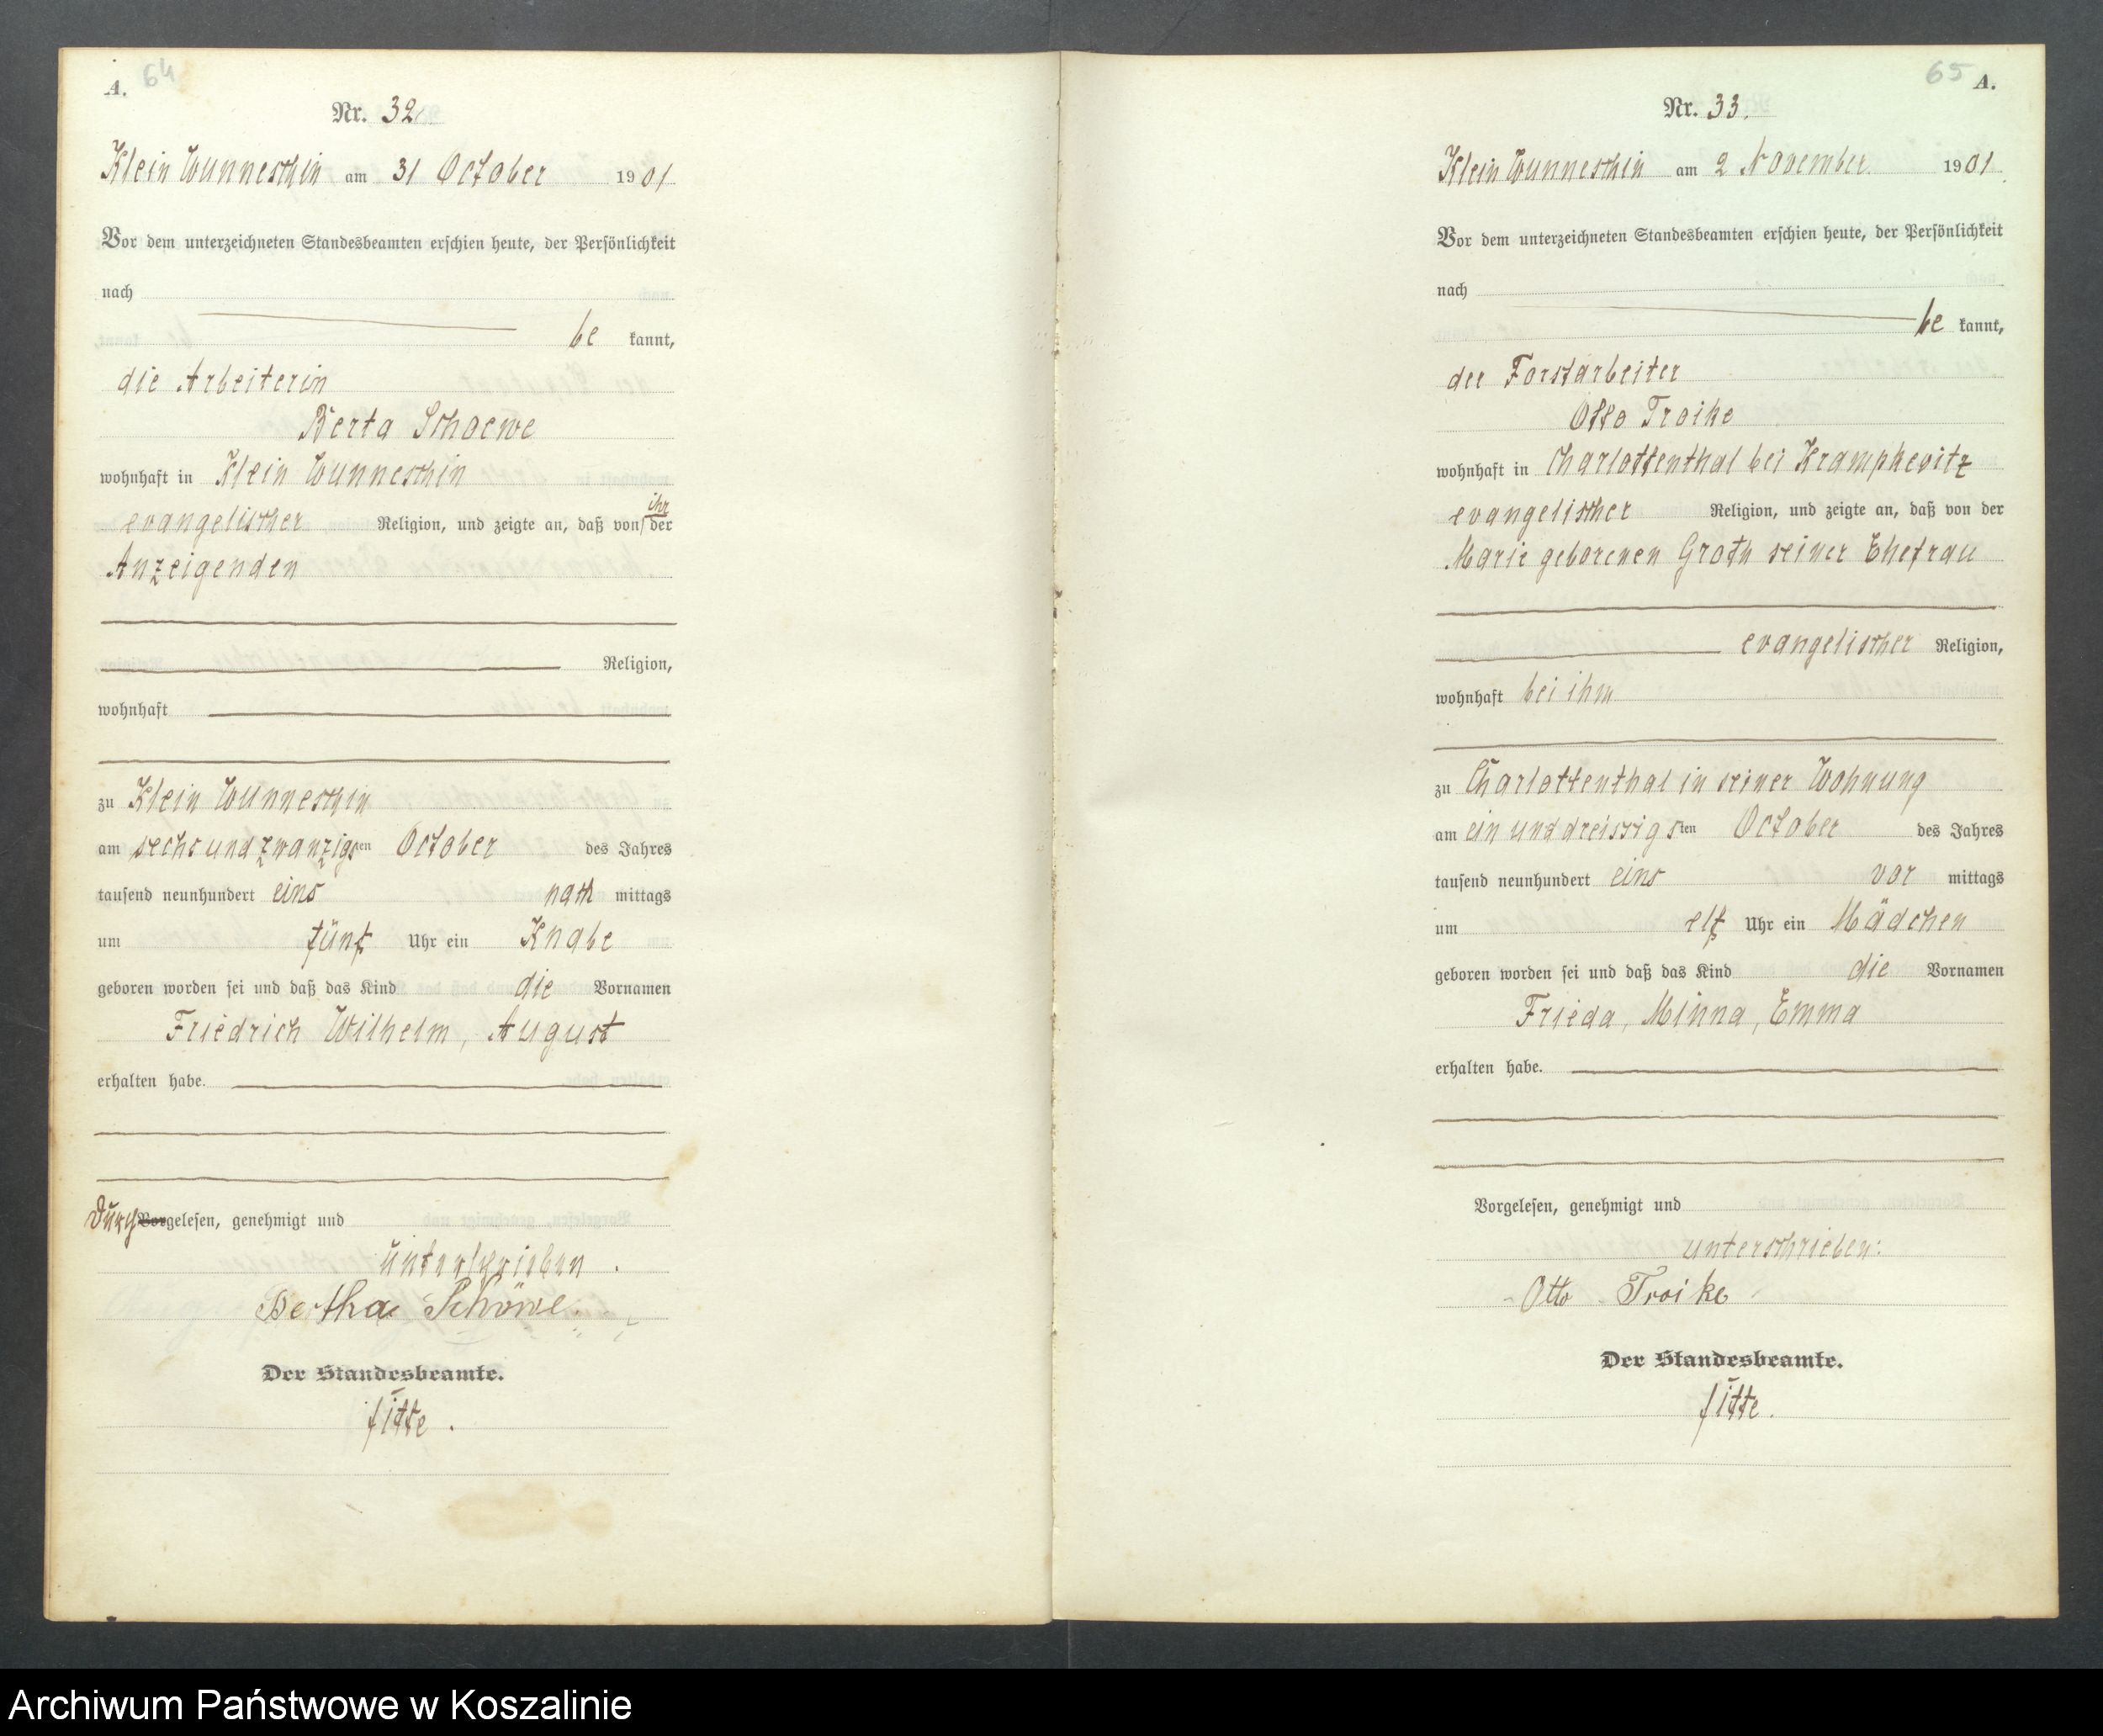 A. 64
Nr. 32
Klein Wunneschin am 31 October 1901
Vor dem unterzeichneten Standesbeamten erschien heute, der Persönlichkeit
nach
be kannt,
die Arbeiterin
Berta Schoewe
wohnhaft in Klein Wunneschin
ihr
evangelischer Religion, und zeigte an, daß von der
Anzeigenden
Religion,
wohnhaft
zu Klein Wunneschin
am sechsundzwanzigsten October des Jahres
tausend neunhundert eins nach mittags
um fünf Uhr ein Knabe
geboren worden sei und daß das Kind die Vornamen
Friedrich Wilhelm, August
erhalten habe.
Durch Vorgelesen, genehmigt und
unterschrieben.
Bertha Schöwe.
Der Standesbeamte.
Fitte.
65 A.
Nr. 33.
Klein Wunneschin am 2 November. 1901.
Vor dem unterzeichneten Standesbeamten erschien heute, der Persönlichkeit
nach
be kannt,
der Forstarbeiter
Otto Troike
wohnhaft in Charlottenthal bei Krampkewitz
evangelischer Religion, und zeigte an, daß von der
Marie geborenen Groth seiner Ehefrau
evangelischer Religion,
wohnhaft bei ihm
zu Charlottenthal in seiner Wohnung
am ein und dreissigsten October des Jahres
tausend neunhundert eins vor mittags
um elf Uhr ein Mädchen
geboren worden sei und daß das Kind die Vornamen
Frieda, Minna, Emma
erhalten habe.
Vorgelesen, genehmigt und
unterschrieben:
Otto Troike
Der Standesbeamte.
Fitte.
Archiwum Państwowe w Koszalinie